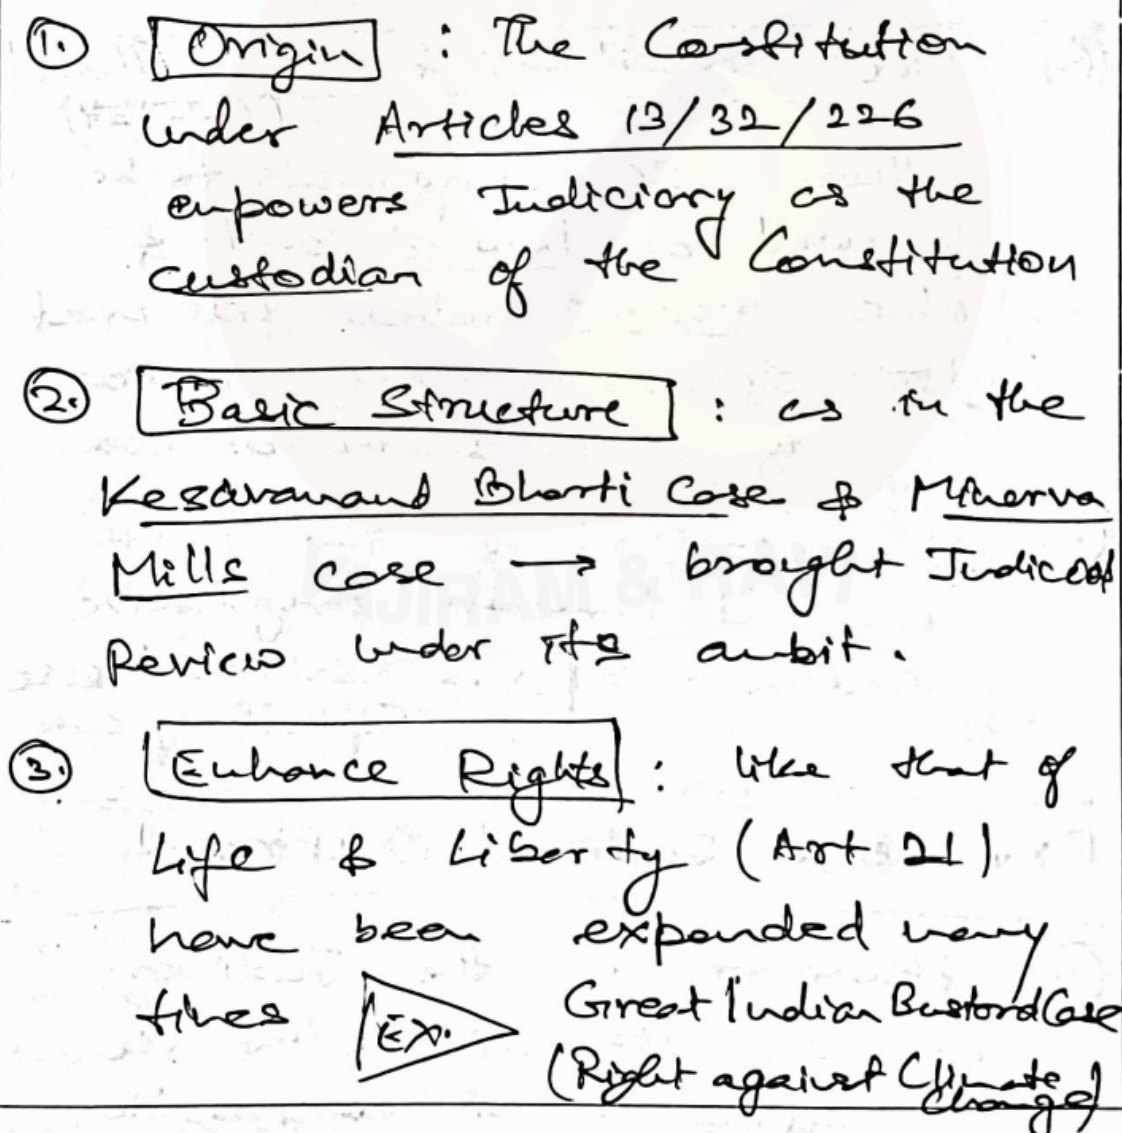 1. Origin : The Constitution
under Articles 13/32/226
empowers Judiciary as the
custodian of the Constitution
2. Basic Structure : as in the
Kesavanand Bharti Case & Minerva
Mills case → brought Judicial
Review under its ambit.
3. Enhance Rights : like that of
Life & Liberty (Art 21)
have been expanded many
times Ex. Great Indian Bustard Case
(Right against Climate
Change)